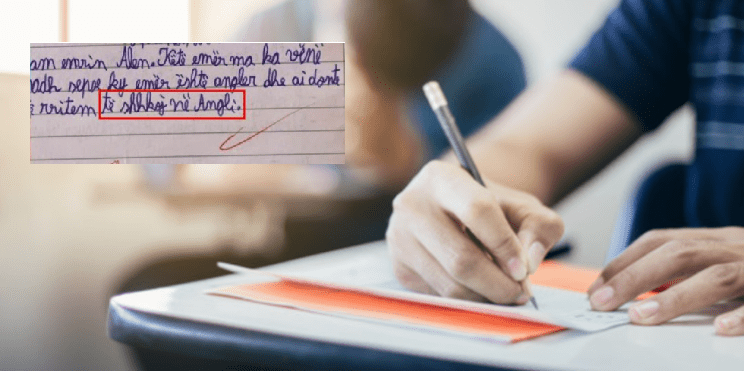 am emrin Alen. Këtë emër ma ka vënë
adh sepse ky emër është angler dhe ai donte
rritem të shkoj në Angli.